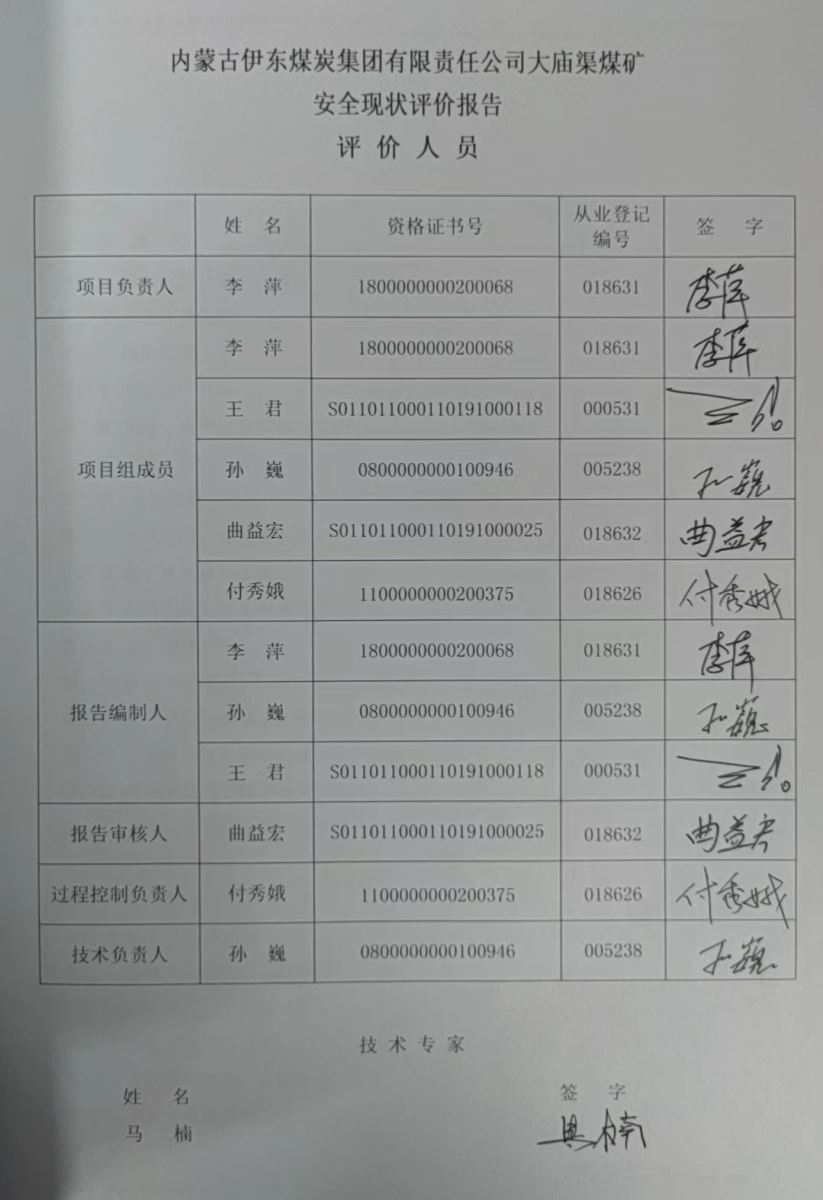 内蒙古伊东煤炭集团有限责任公司大庙渠煤矿
安全现状评价报告
评价人员
姓 名 资格证书号 从业登记编号 签 字
项目负责人 李 萍 1800000000200068 018631 李萍
项目组成员 李 萍 1800000000200068 018631 李萍
王 君 S011011000110191000118 000531
孙 巍 0800000000100946 005238 孙巍
曲益宏 S011011000110191000025 018632 曲益宏
付秀娥 1100000000200375 018626 付秀娥
报告编制人 李 萍 1800000000200068 018631 李萍
孙 巍 0800000000100946 005238 孙巍
王 君 S011011000110191000118 000531
报告审核人 曲益宏 S011011000110191000025 018632 曲益宏
过程控制负责人 付秀娥 1100000000200375 018626 付秀娥
技术负责人 孙 巍 0800000000100946 005238 孙巍
技术专家
姓 名 签 字
马 楠 马楠